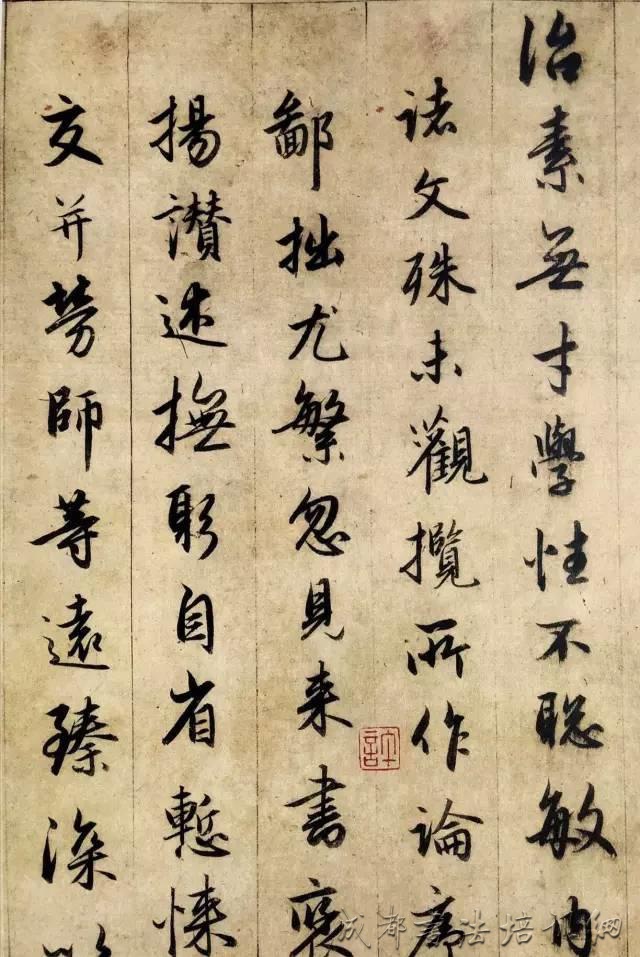 治素無才學性不聰敏內
諸文殊未觀攬所作論序
鄙拙尤繁忽見来書褒
揚讃述撫躬自省慙悚
交并勞師等遠臻深以
許
成都書法培訓網